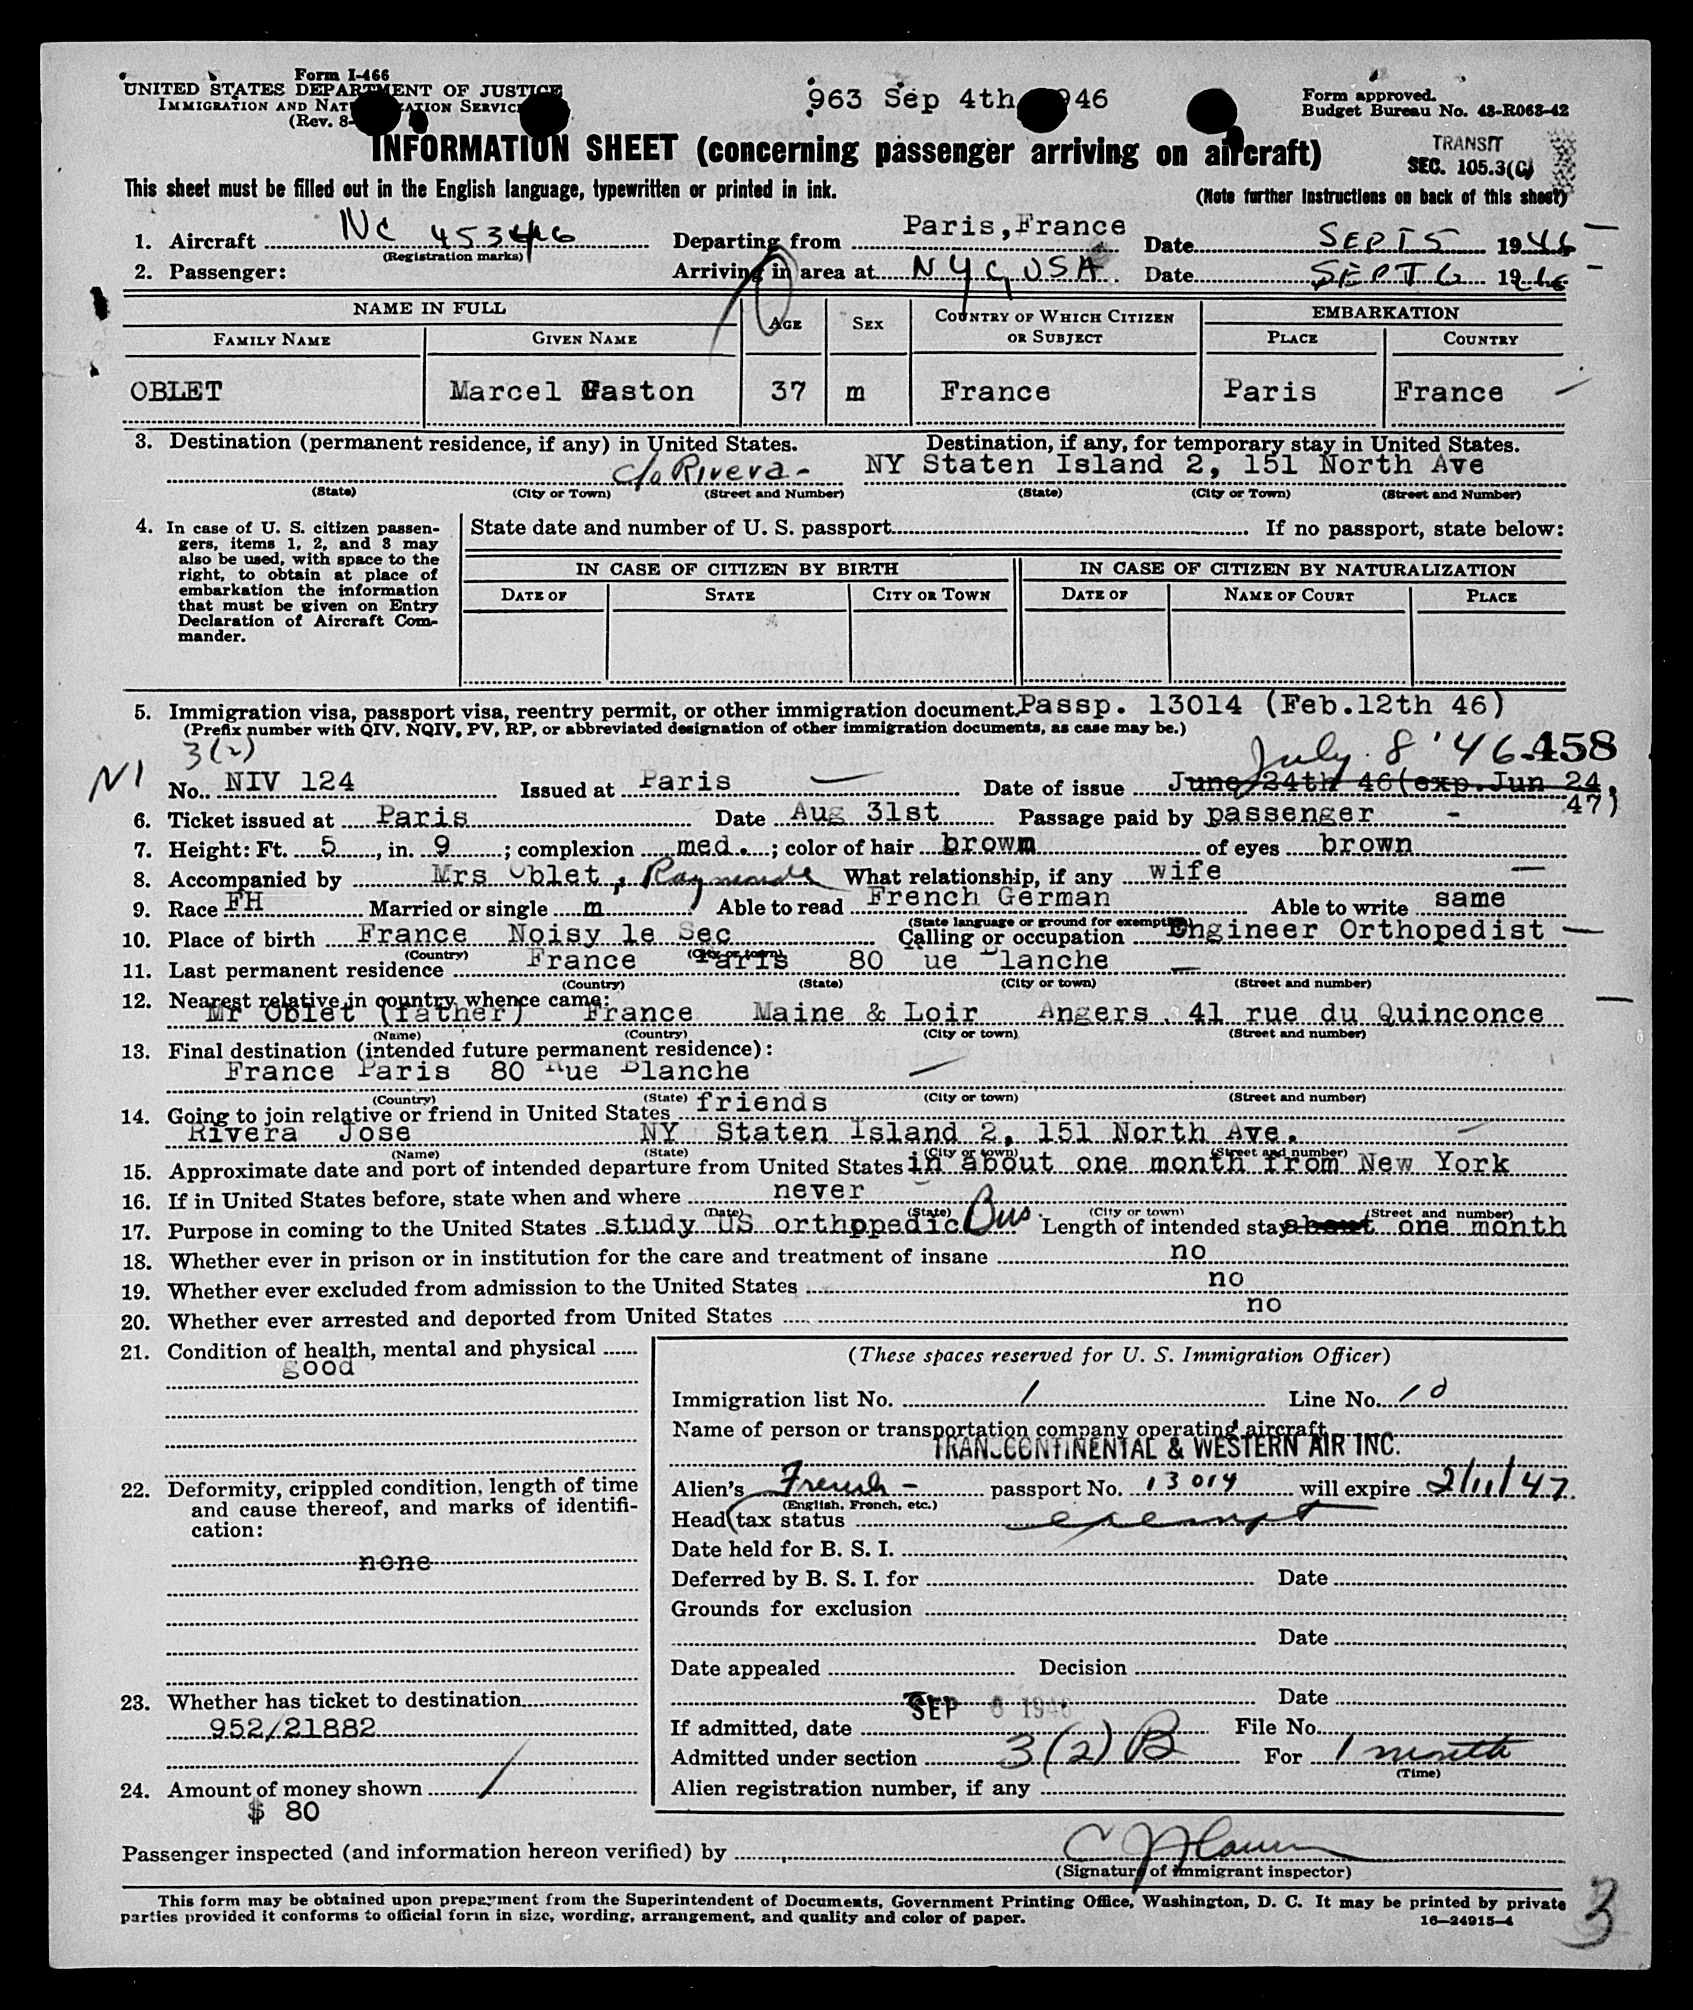 Form I-466
UNITED STATES DEPARTMENT OF JUSTICE
IMMIGRATION AND NAT ATION SERVICE
(Rev. 8-
963 Sep 4th 946
Form approved.
Budget Bureau No. 43-R063-42
INFORMATION SHEET (concerning passenger arriving on aircraft)
TRANSIT
SEC. 105.3(C)
This sheet must be filled out in the English language, typewritten or printed in ink.
(Note further instructions on back of this sheet)
1. Aircraft NC 45346 Departing from Paris,France Date SEPT 5 1946
(Registration marks)
2. Passenger: Arriving in area at NYC, USA. Date SEPT 6 1946
NAME IN FULL AGE SEX COUNTRY OF WHICH CITIZEN OR SUBJECT EMBARKATION
FAMILY NAME GIVEN NAME PLACE COUNTRY
OBLET Marcel Gaston 37 m France Paris France
3. Destination (permanent residence, if any) in United States. Destination, if any, for temporary stay in United States.
c/o Rivera - NY Staten Island 2, 151 North Ave
(State) (City or Town) (Street and Number) (State) (City or Town) (Street and Number)
4. In case of U. S. citizen passen-
gers, items 1, 2, and 3 may
also be used, with space to the
right, to obtain at place of
embarkation the information
that must be given on Entry
Declaration of Aircraft Com-
mander.
State date and number of U. S. passport If no passport, state below:
IN CASE OF CITIZEN BY BIRTH IN CASE OF CITIZEN BY NATURALIZATION
DATE OF STATE CITY OR TOWN DATE OF NAME OF COURT PLACE
5. Immigration visa, passport visa, reentry permit, or other immigration document Passp. 13014 (Feb.12th 46)
(Prefix number with QIV, NQIV, PV, RP, or abbreviated designation of other immigration documents, as case may be.)
3(2) July 8 '46 458
NI No. NIV 124 Issued at Paris Date of issue June/24th 46(exp.Jun 24,
47)
6. Ticket issued at Paris Date Aug 31st Passage paid by passenger -
7. Height: Ft. 5, in. 9; complexion med.; color of hair brown of eyes brown
8. Accompanied by Mrs Oblet, Raymonde What relationship, if any wife
9. Race FH Married or single m Able to read French German Able to write same
(State language or ground for exemption)
10. Place of birth France Noisy le Sec Calling or occupation Engineer Orthopedist
(Country) (City or town)
11. Last permanent residence France Paris 80 ue Blanche
(Country) (State) (City or town) (Street and number)
12. Nearest relative in country whence came:
Mr Oblet (father) France Maine & Loir Angers, 41 rue du Quinconce
(Name) (Country) (City or town) (Street and number)
13. Final destination (intended future permanent residence):
France Paris 80 Rue Blanche
(Country) (State) (City or town) (Street and number)
14. Going to join relative or friend in United States friends
Rivera Jose NY Staten Island 2, 151 North Ave.
(Name) (State) (City or town) (Street and number)
15. Approximate date and port of intended departure from United States in about one month from New York
16. If in United States before, state when and where never
(Date) (State) (City or town) (Street and number)
17. Purpose in coming to the United States study US orthopedic Bus. Length of intended stay about one month
18. Whether ever in prison or in institution for the care and treatment of insane no
19. Whether ever excluded from admission to the United States no
20. Whether ever arrested and deported from United States no
21. Condition of health, mental and physical
good
22. Deformity, crippled condition, length of time
and cause thereof, and marks of identifi-
cation:
none
23. Whether has ticket to destination
952/21882
24. Amount of money shown
$ 80
(These spaces reserved for U. S. Immigration Officer)
Immigration list No. 1 Line No. 10
Name of person or transportation company operating aircraft
TRANSCONTINENTAL & WESTERN AIR INC.
Alien's French - passport No. 13014 will expire 2/11/47.
(English, French, etc.)
Head tax status exempt
Date held for B. S. I.
Deferred by B. S. I. for Date
Grounds for exclusion
Date
Date appealed Decision
Date
SEP 6 1946
If admitted, date File No.
Admitted under section 3(2)B For 1 month
(Time)
Alien registration number, if any
Passenger inspected (and information hereon verified) by
(Signature of immigrant inspector)
This form may be obtained upon prepayment from the Superintendent of Documents, Government Printing Office, Washington, D. C. It may be printed by private
parties provided it conforms to official form in size, wording, arrangement, and quality and color of paper.
16—24915-4
3